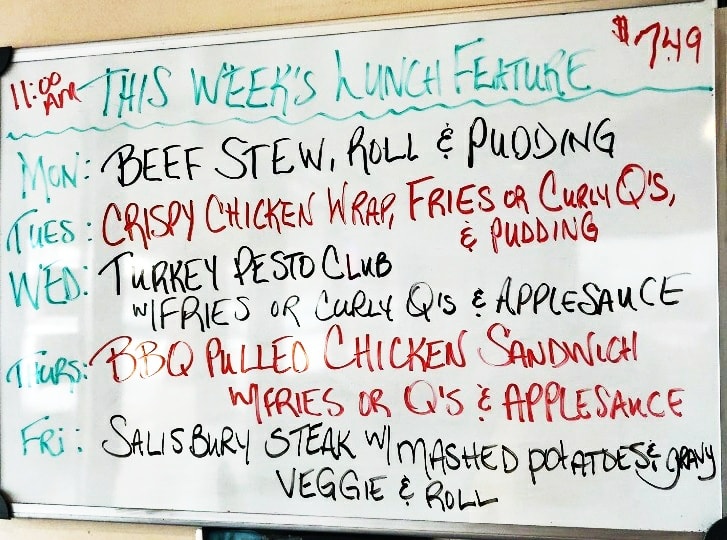 11:00 AM THIS WEEK'S LUNCH FEATURE $7.49
MON: BEEF STEW, ROLL & PUDDING
TUES: CRISPY CHICKEN WRAP, FRIES OR CURLY Q'S,
& PUDDING
WED: TURKEY PESTO CLUB
W/FRIES OR CURLY Q'S & APPLESAUCE
THURS: BBQ PULLED CHICKEN SANDWICH
W/FRIES OR Q'S & APPLESAUCE
FRI: SALISBURY STEAK W/ MASHED POTATOES & GRAVY
VEGGIE & ROLL